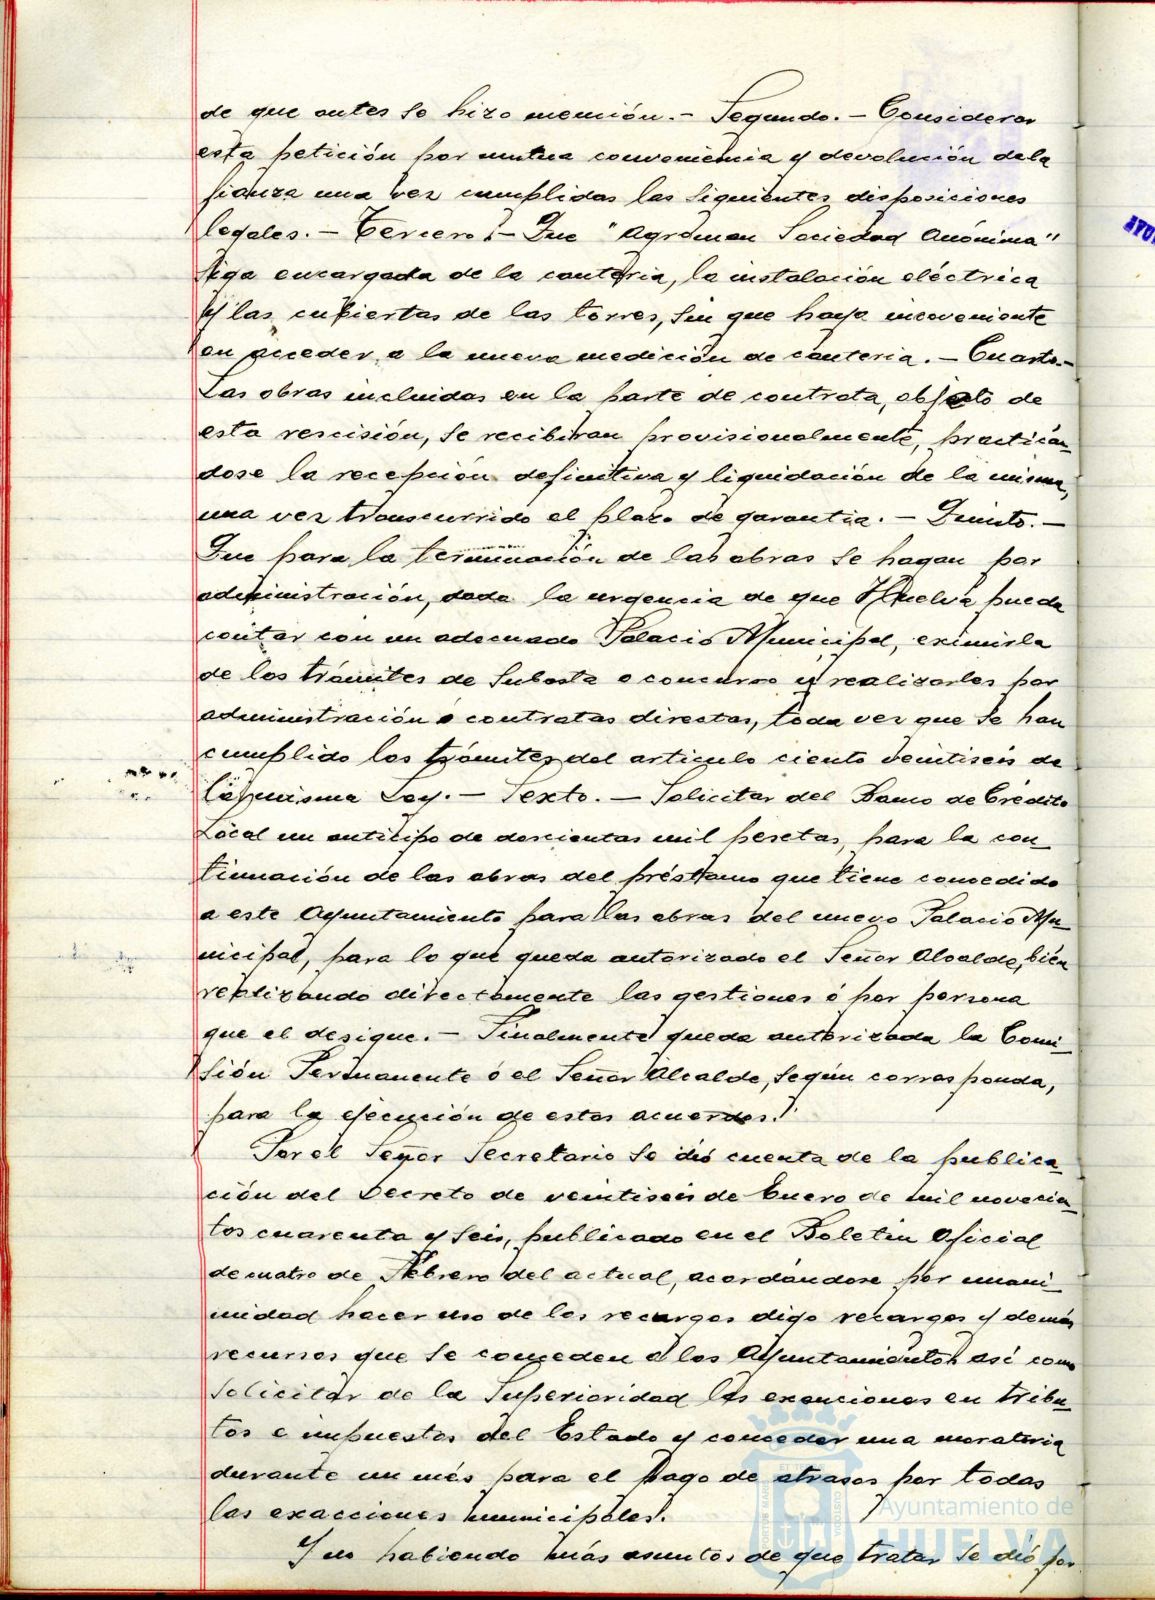 de que antes se hizo mención.- Segundo.- Considerar
esta petición por mutua conveniencia y devolución dela
fianza una vez cumplidas las siguientes disposiciones
legales.- Tercero.- Que "Agroman Sociedad Anónima"
siga encargada de la cantería, la instalación eléctrica
y las cubiertas de las torres, sin que haya inconveniente
en acceder a la nueva medición de canteria.- Cuarto.-
Las obras incluidas en la parte de contrata, objeto de
esta rescisión, se recibiran provisionalmente, practicán-
dose la recepción definitiva y liquidación de la misma,
una vez transcurrido el plazo de garantia.- Quinto.-
Que para la terminación de las obras se hagan por
administración, dada la urgencia de que Huelva pueda
contar con un adecuado Palacio Municipal, eximirla
de los trámites de Subasta o concurso y realizarlas por
administración o contratas directas, toda vez que se han
cumplido los trámites del articulo ciento veintiseis de
la misma Ley.- Sexto.- Solicitar del Banco de Crédito
Local un anticipo de doscientas mil pesetas, para la con-
tinuación de las obras del préstamo que tiene concedido
a este Ayuntamiento para las obras del nuevo Palacio Mu-
nicipal, para lo que queda autorizado el Señor Alcalde, bién
realizando directamente las gestiones ó por persona
que el designe.- Finalmente queda autorizada la Comi-
sión Permanente ó el Señor Alcalde, según corresponda,
para la ejecución de estos acuerdos.
Por el Señor Secretario se dió cuenta de la publica-
ción del Decreto de veintiseis de Enero de mil novecien-
tos cuarenta y seis, publicado en el Boletin Oficial
de cuatro de Febrero del actual, acordándose por unani-
midad hacer uso de los recurgos digo recargos y demás
recursos que se conceden a los Ayuntamientos así como
solicitar de la Superioridad las exenciones en tribu-
tos e impuestos del Estado y conceder una moratoria
durante un més para el pago de atrasos por todas
las exacciones municipales.
Y no habiendo más asuntos de que tratar se dió por
Ayuntamiento de
HUELVA